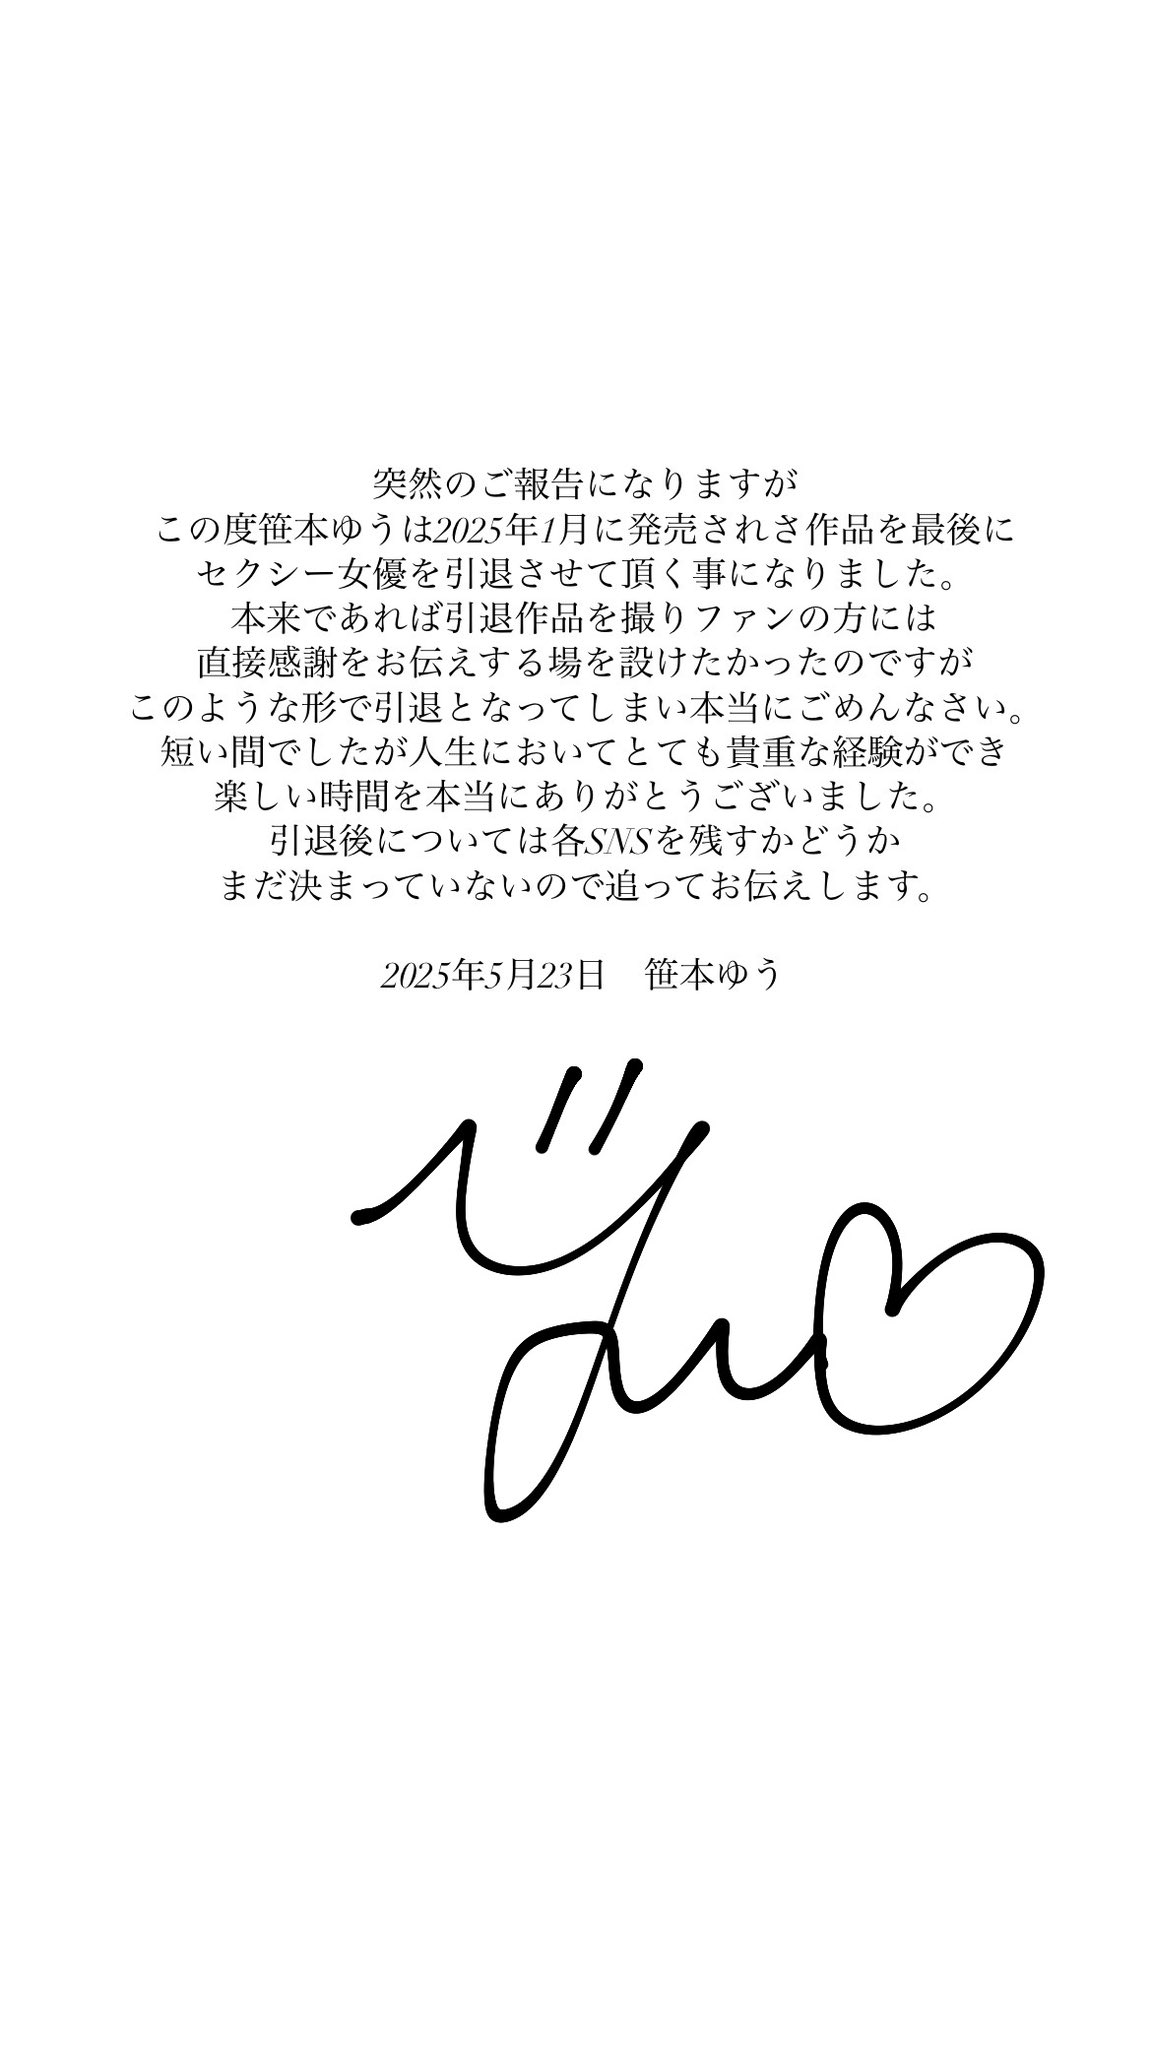 突然のご報告になりますが
この度笹本ゆうは2025年1月に発売されさ作品を最後に
セクシー女優を引退させて頂く事になりました。
本来であれば引退作品を撮りファンの方には
直接感謝をお伝えする場を設けたかったのですが
このような形で引退となってしまい本当にごめんなさい。
短い間でしたが人生においてとても貴重な経験ができ
楽しい時間を本当にありがとうございました。
引退後については各SNSを残すかどうか
まだ決まっていないので追ってお伝えします。
2025年5月23日　笹本ゆう